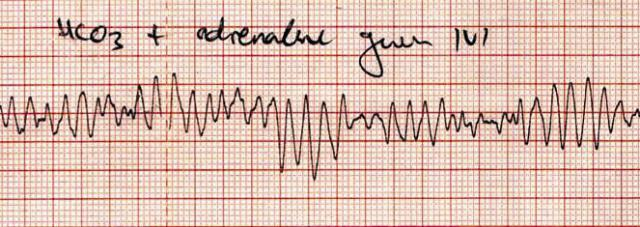 HCO3 + adrenaline given IVI